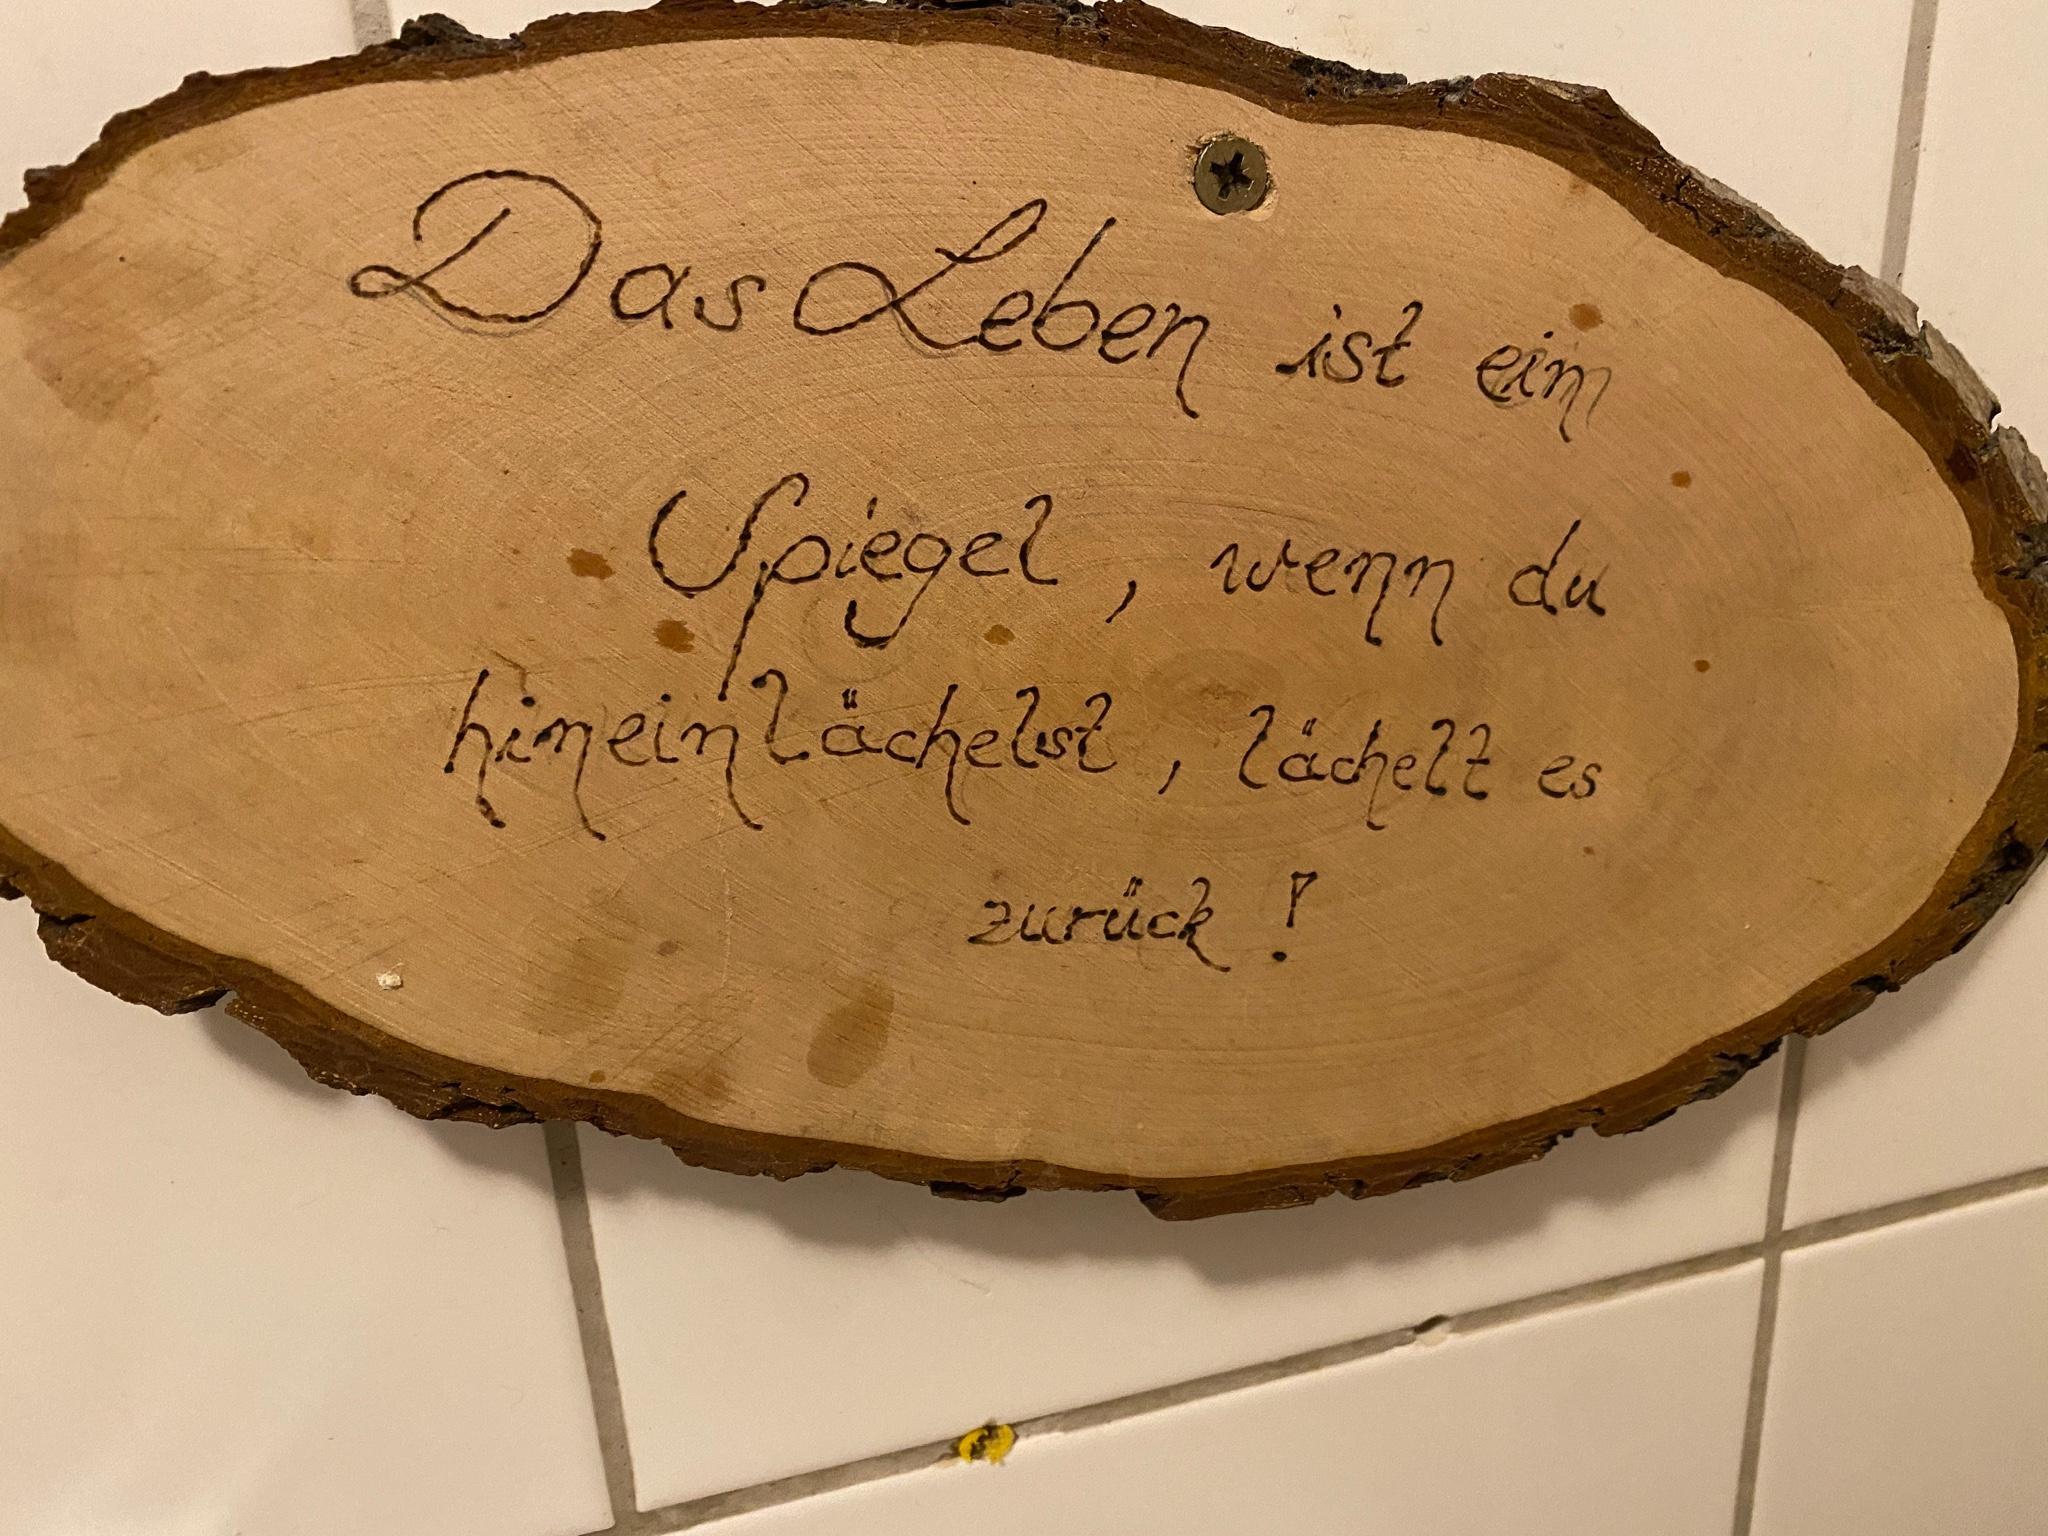 Das Leben ist ein
Spiegel, wenn du
hineinlächelst, lächelt es
zurück!